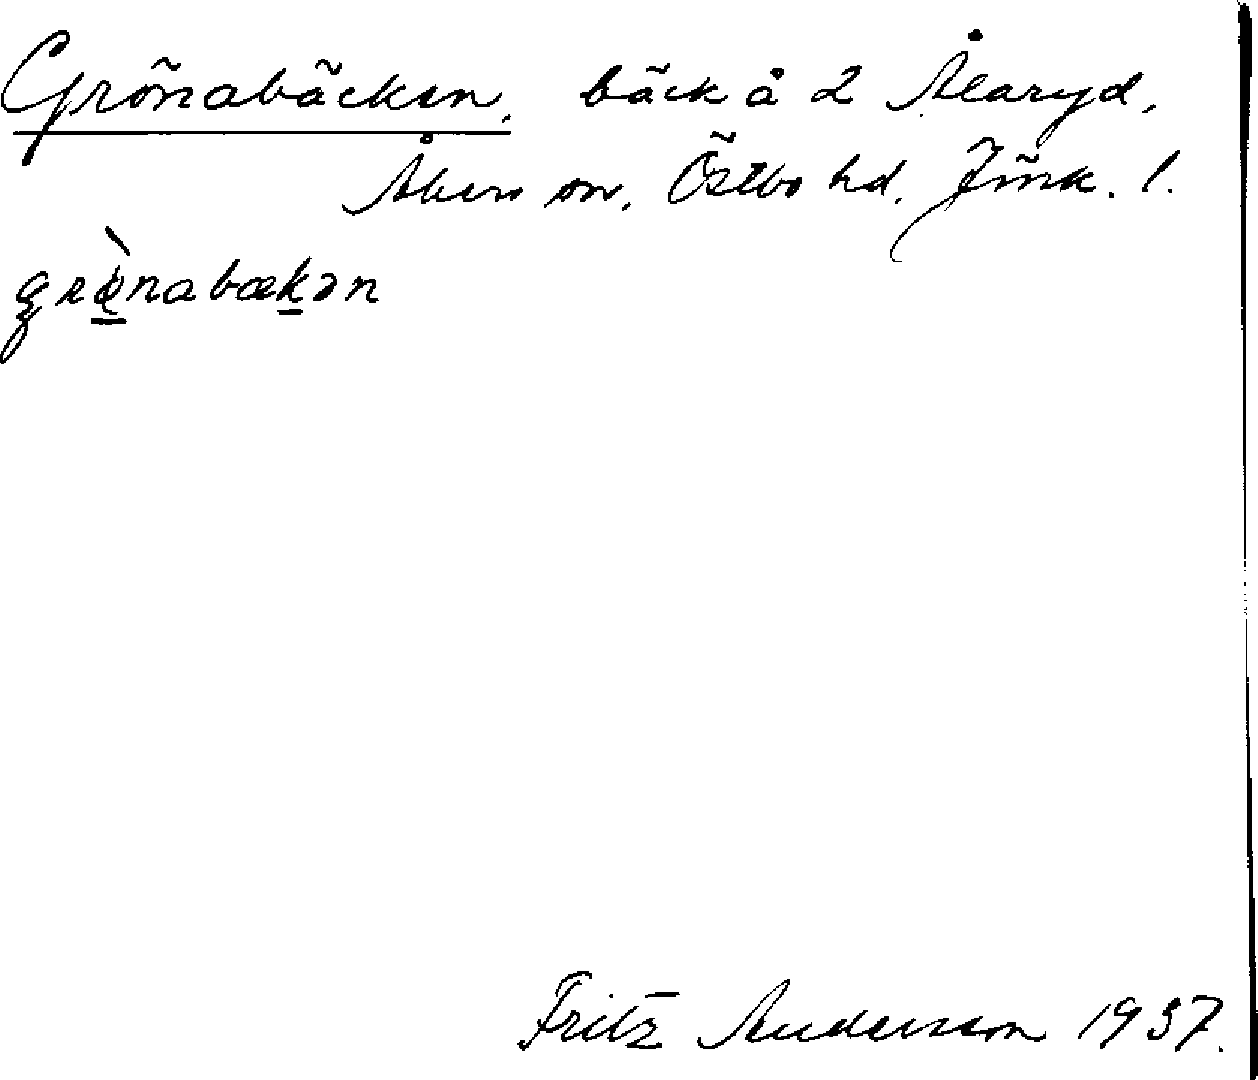 Grönabäcken, bäck å 2 Ålaryd,
Åkers sn, Östbo hd. Jönk. l.
grö̀nabækən
Fritz Andersson 1937.